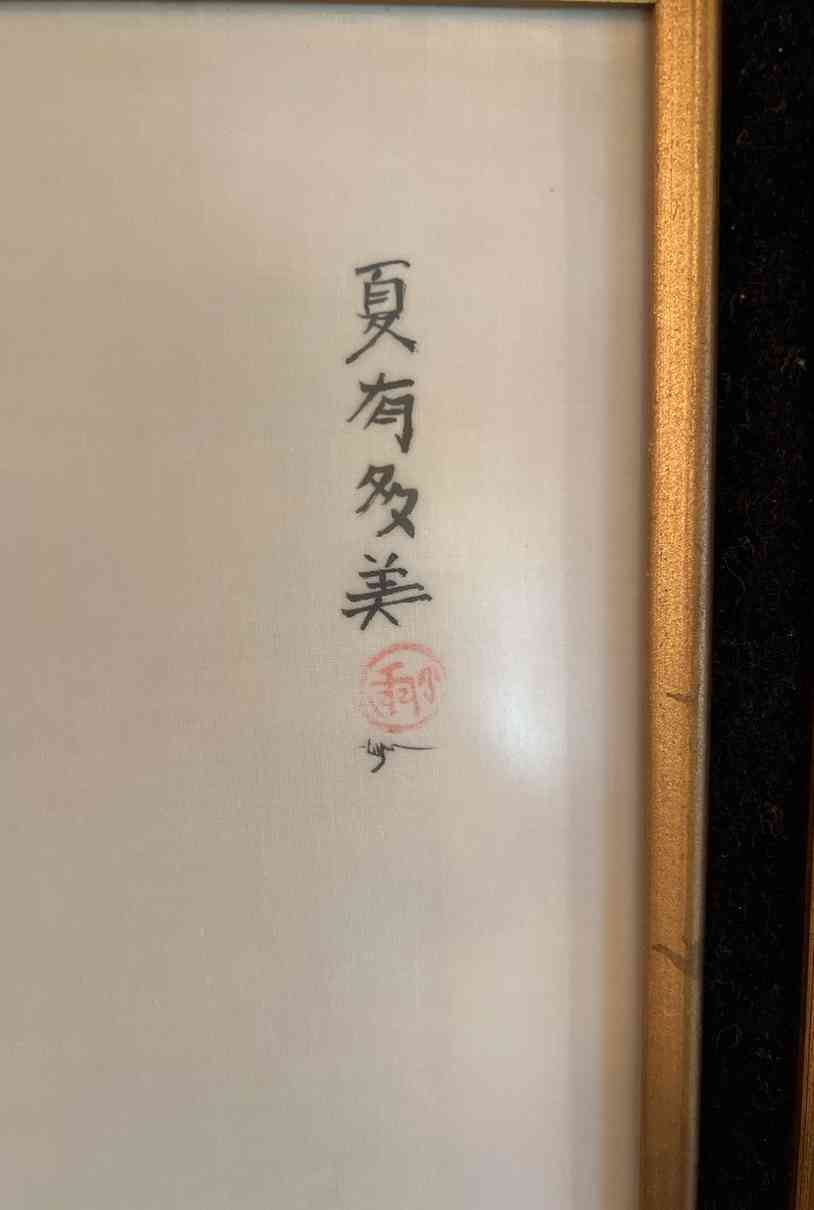 夏有多美